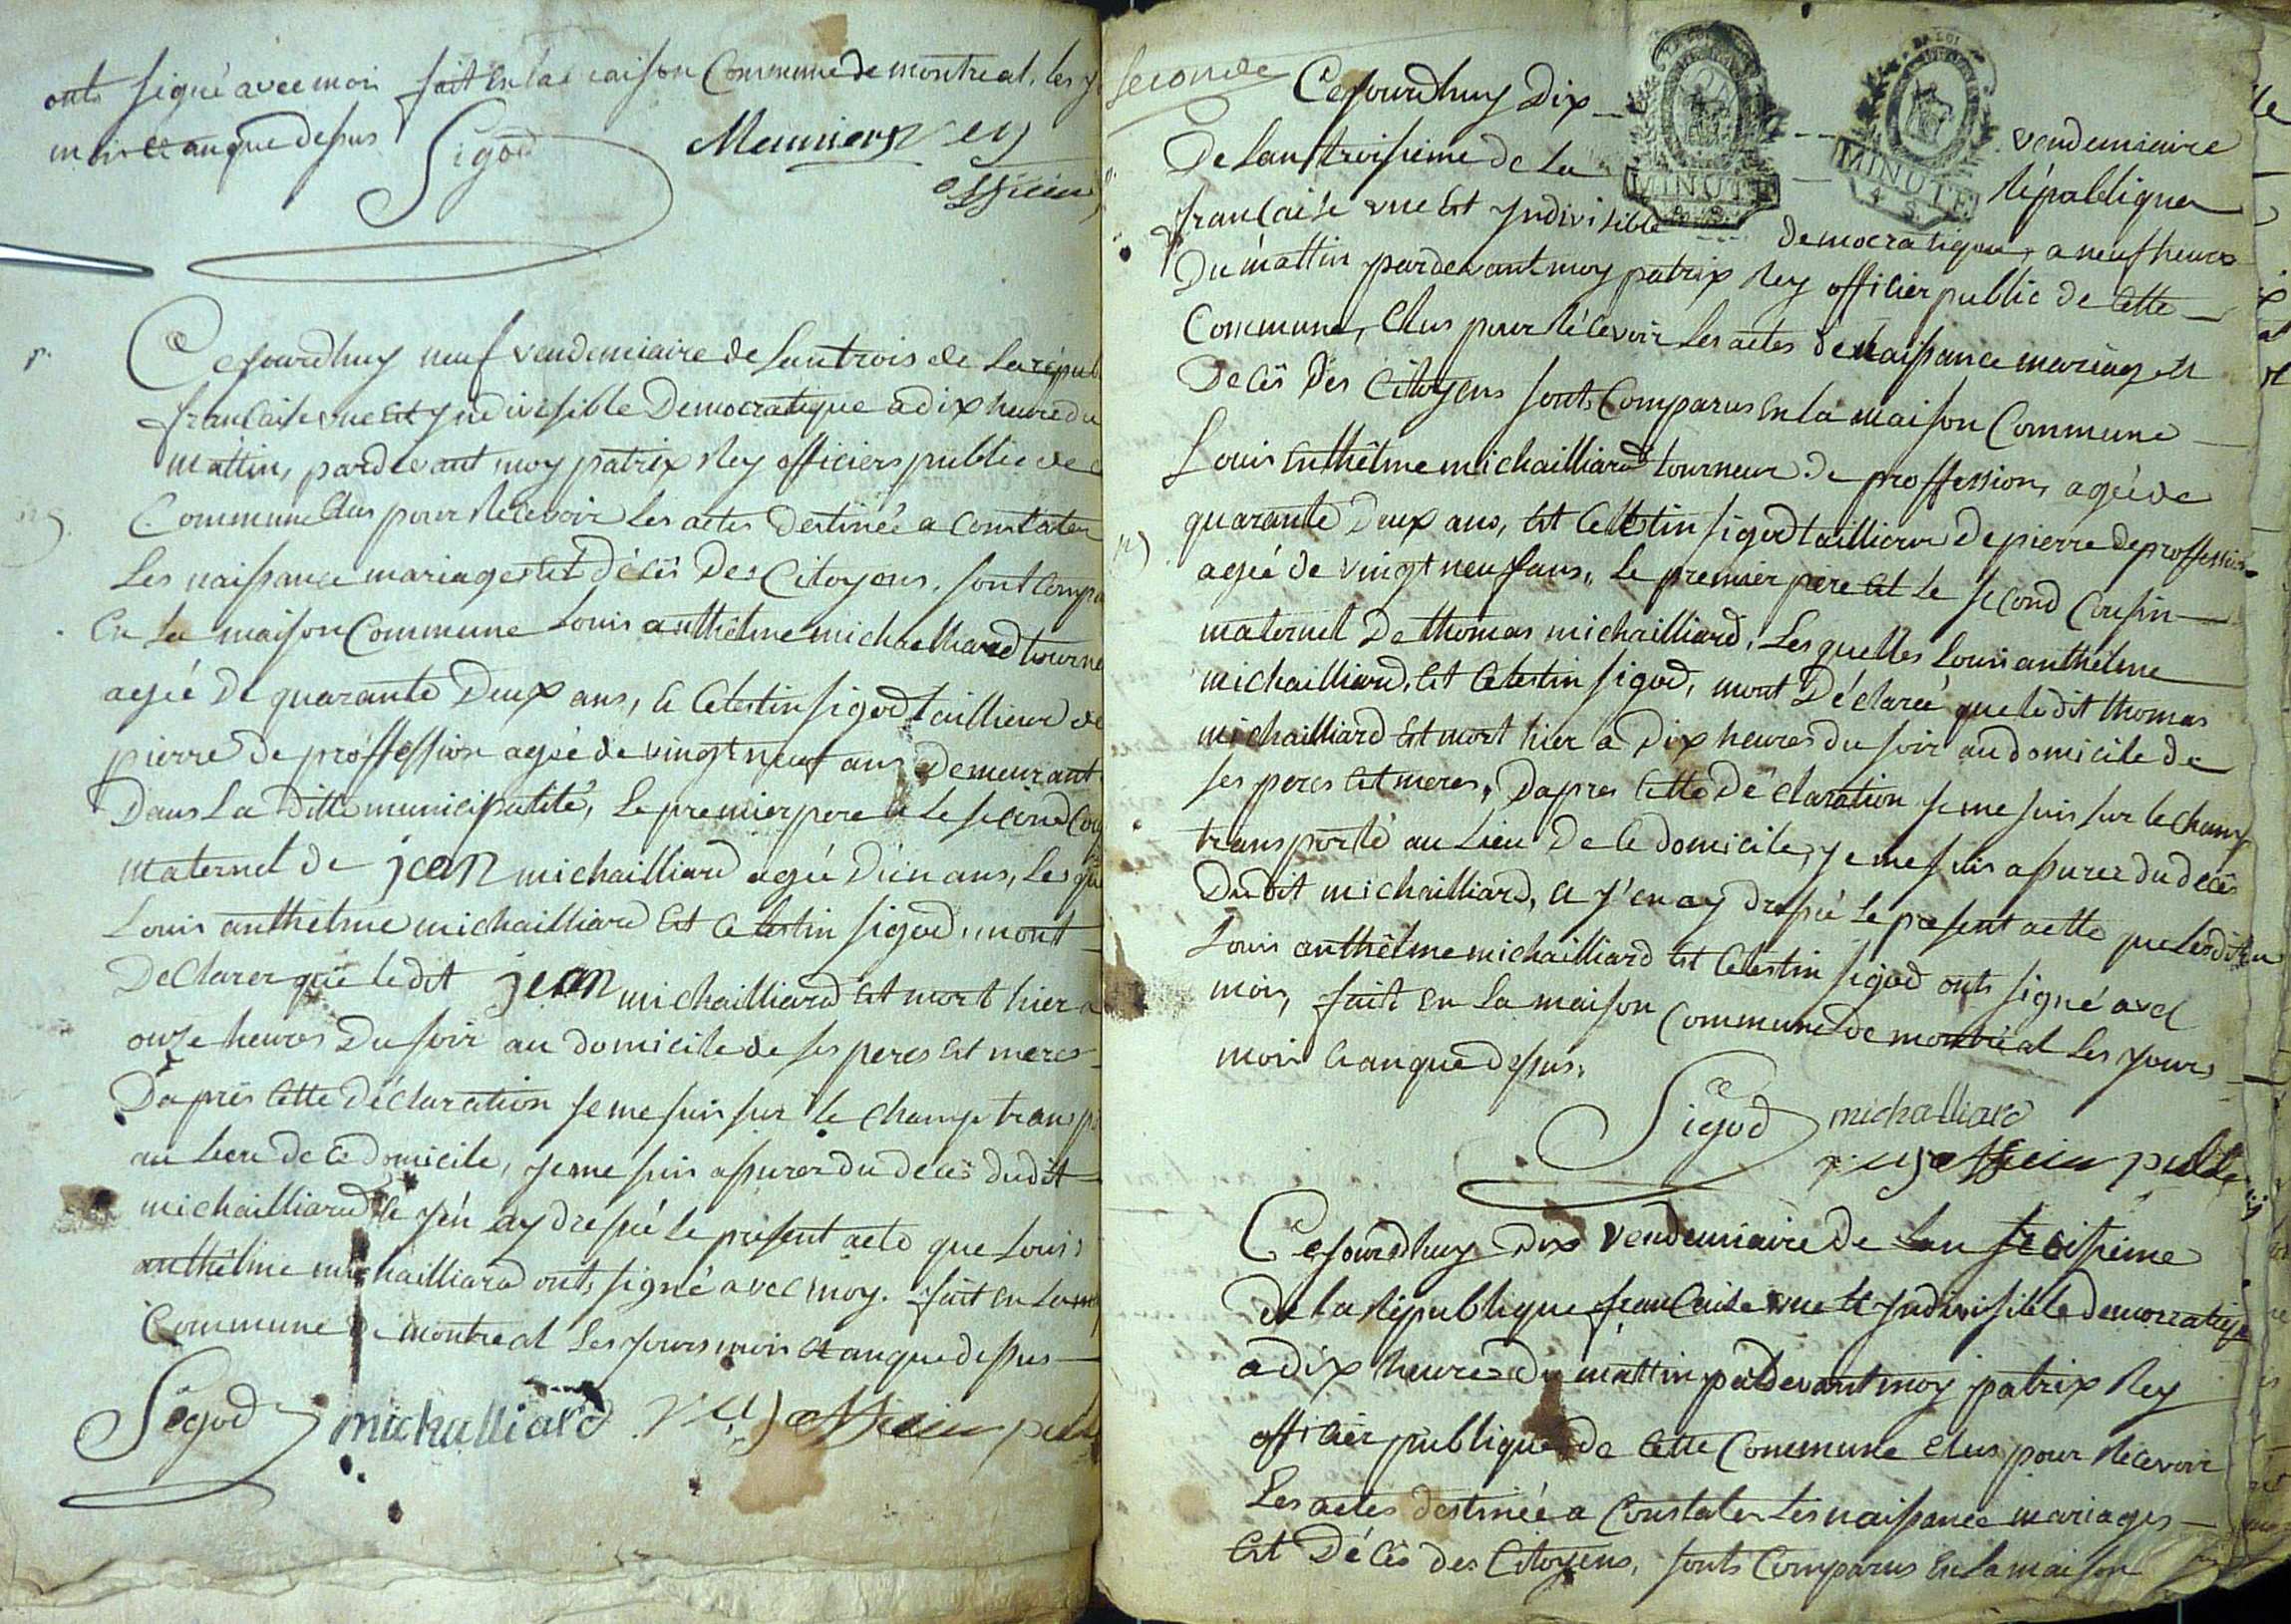 onts signé avec moi fait en la maison Commune de montreal. les
mois et an que dessus Sigod Meuniers rey
officier
r.
Cejourdhuy neuf vendemiaire de Lantrois de La répub
francaise une est yndivisible Democratique a dix heure du
mattin, pardevant moy patrix Rey officiers public de
Commune Elus pour Recevoir Les actes Destinée a constater
Les naissance mariages et décès Des Citoyens. sont Comp
En La maison Commune Louis anthêlme michaelliard tourne
agéé De quarante Deux ans, & Celestin Sigod taillieur de
pierre de proffession agéé de vingt neuf ans Demeurant
Dans La ditte municipalité, Le premier pere & le second Cou
maternel de jean michailliard agéé D'un ans, Les qu
Louis anthelme michailliard Est Celestin Sigod, mont
Declarer que ledit jean michailliard est mort hier a
onze heures Du soir au domicile de ses peres est meres
Daprès Cette Déclaration je me suis sur le champ transp
au Lieu de Ce Domicile, je me suis assurer du décès dudit
michailliard & j'en ay dressé Le present acte que Louis
anthêlme michailliard onts signé avec moy. fait en La m
Commune de montreal Les jours mois et an que dessus
Sigod michalliard rey officier publ
Seconde
Cejourdhuy Dix vendemiaire
De Lan troisieme de La Républiquea
francaise une est yndivisible democratique, a neuf heures
Du mattin pardevant moy patrix Rey officier public de Cette
Commune, Elus pour Récevoir Les actes de naissance mariag et
Décès Des Citoyens sonts Comparus en la maison Commune
Louis Enthêlme michailliard tourneur de proffession, agéé de
quarante Deux ans, Est Cellestin Sigod taillieur De pierre de proffession
agéé de vingt neuf ans, Le premier père et le second Cousin
maternel De thomas michailliard, Les quelles Louis anthelme
michailliard, Est Celestin Sigod, mont Déclareé que ledit thomas
michailliard est mort hier a Dix heures du soir au domicile de
ses peres est meres, Dapres Cette Déclaration je me suis sur le champ
transporté au Lieu De Ce Domicile, je me suis assurer du decès
Dudit michailliard, & j'en ay dressé Le present actte que lesdits
Louis anthêlme michailliard Est Celestin Sigod onts signé avec
moi, fait en La maison Commune de montréal Les jours
mois & an que dessus.
Sigod michalliard
rey officier public
Cejourdhuy Dix vendemiaire de Lan troisieme
de La République francaise une Et yndivisible democratique
a dix heures du mattin pardevant moy patrix Rey
officier publique de Cette Commune Elus pour Recevoir
Les actes destinée a Constater Les naissance mariages
Est Décès des Citoyens, sonts Comparus en La maison
MINUTE
MINUTE
4 S.